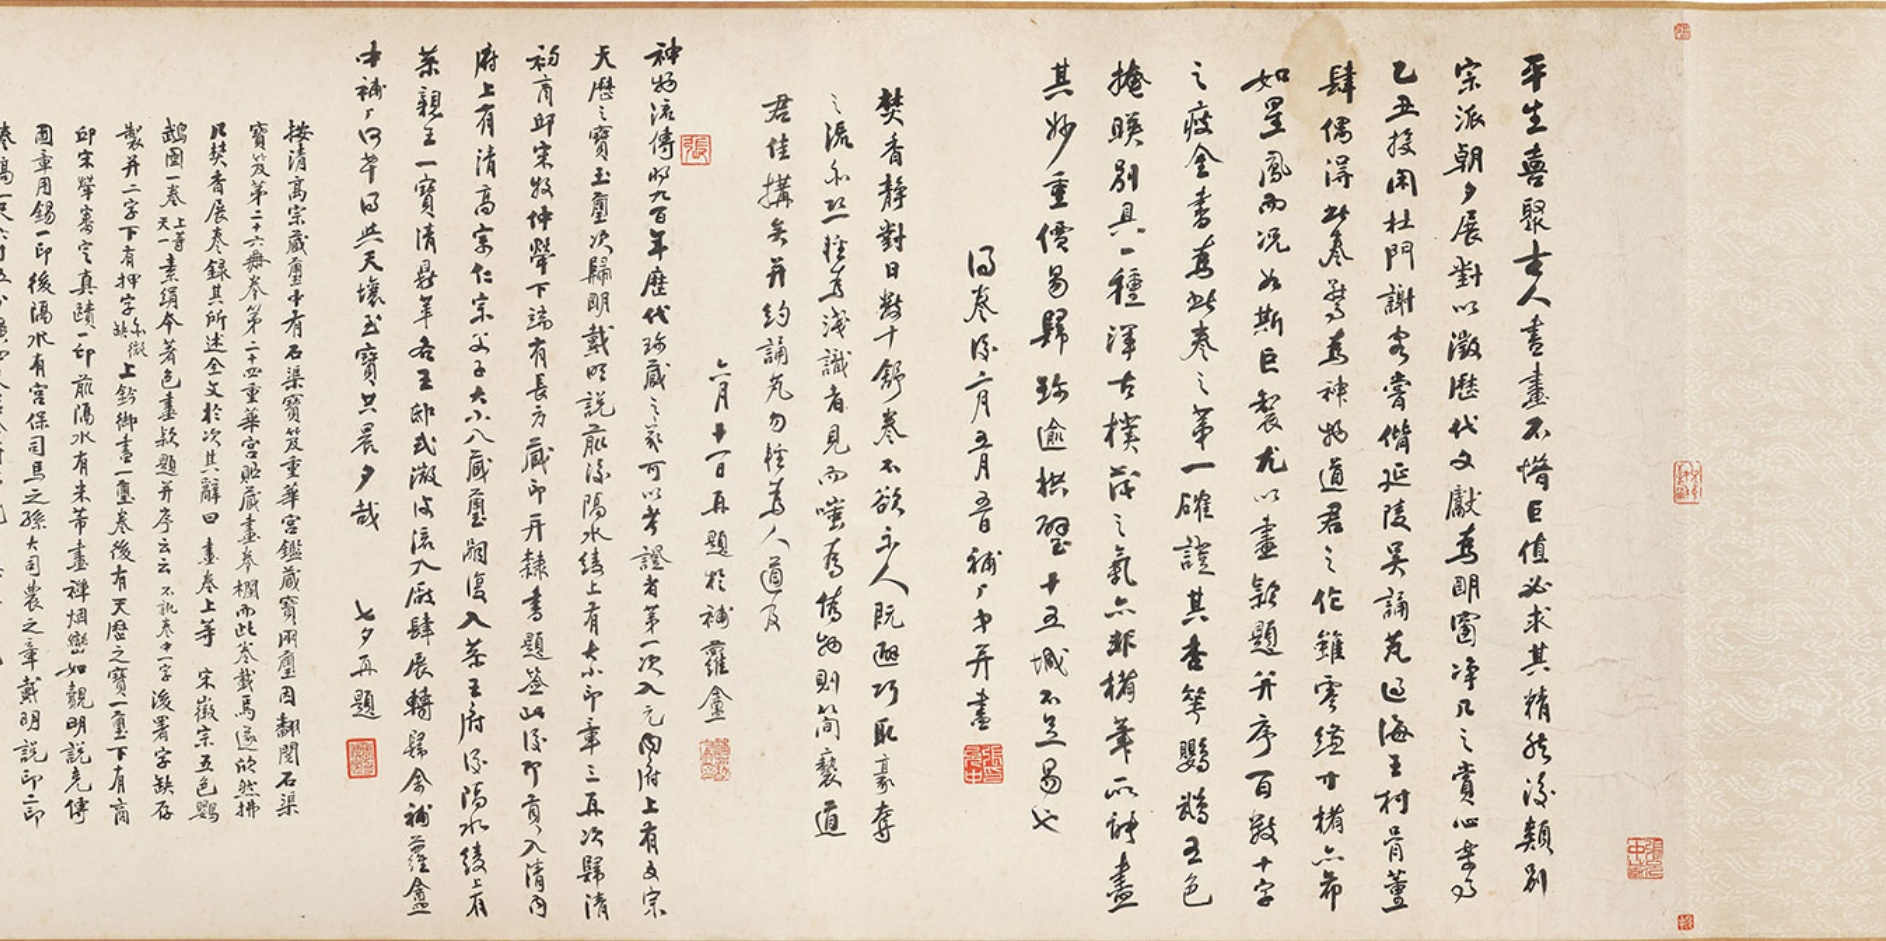 平生喜聚古人書畫不惜巨值必求其精然後類別
宗派朝夕展對以徵歷代文獻焉明窗淨几之賞心樂
乙丑投閑杜門謝客嘗偕延陵吳誦芃過海王村骨董
肆偶得此卷驚為神物道君之作雖零縑寸楮亦希
如星鳳而況如斯巨製尤以畫款題并序百數十字
之瘦金書為此卷之第一確證其杏華鸚鵡五色
掩暎別具一種渾古樸茂之氣亦非楮筆所能盡
其妙重價易歸珍逾拱璧十五城不足易也
得卷後六月五日補廠再并書
焚香靜對日數十舒卷不欲示人既避巧取豪奪
之流亦恐輕為淺識者見而嗤為偽物則簡褻道
君佳搆矣并約誦芃勿輕為人道及
六月十一日再題於補蘿盦
神物流傳將九百年歷代珍藏之家可以考證者第一次入元內府上有文宗
天曆之寶玉璽次歸明戴明說前後隔水綾上有大小印章三再次歸清
初商邱宋牧仲犖下端有長方藏印并隸書題簽此後即貢入清內
府上有清高宗仁宗父子大小八藏璽嗣復入榮王府後隔水綾上有
榮親王一寶清鼎革各王邸式微皮流入廠肆展轉歸余補蘿盦
中補廠何幸得此天壤至寶共晨夕哉 七夕再題
按清高宗藏璽中有石渠寶笈重華宮鑑藏寶兩璽因翻閱石渠
寶笈第二十六冊卷第二十四重華宮貯藏畫卷欄而此卷載焉遂欣然拂
几焚香展卷錄其所述全文於次其辭曰 畫卷上等 宋徽宗五色鸚
鵡圖一卷 上等天一 素絹本著色畫款題并序云云 不計卷中一字 後署字缺存
製并二字下有押字 上鈐御書一璽卷後有天曆之寶一璽下有商
邱宋犖審定真蹟一印前隔水有米芾畫禪烟巒如覿明說克傳
圖章用錫一印後隔水有宮保司馬之孫大司農之章戴明說印二印
卷高一尺六寸五分
張